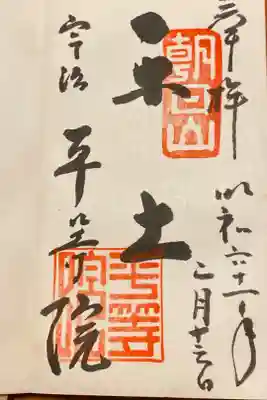 奉拝
昭和六十一年
月十三日
朝日山
土
平等院
宇治 平等院